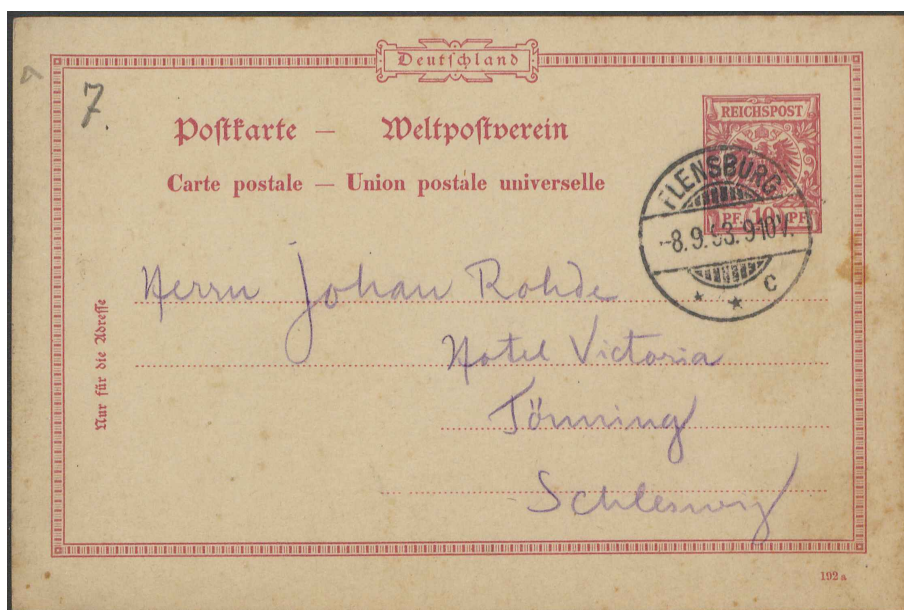 Deutschland
7.
Postkarte — Weltpostverein
Carte postale — Union postale universelle
REICHSPOST
PF. 10 PF.
FLENSBURG
-8.9.93.9-10V.
* * c
Herrn Johan Rohde
Hotel Victoria
Tönning
Schleswig
Nur für die Adresse
192 a